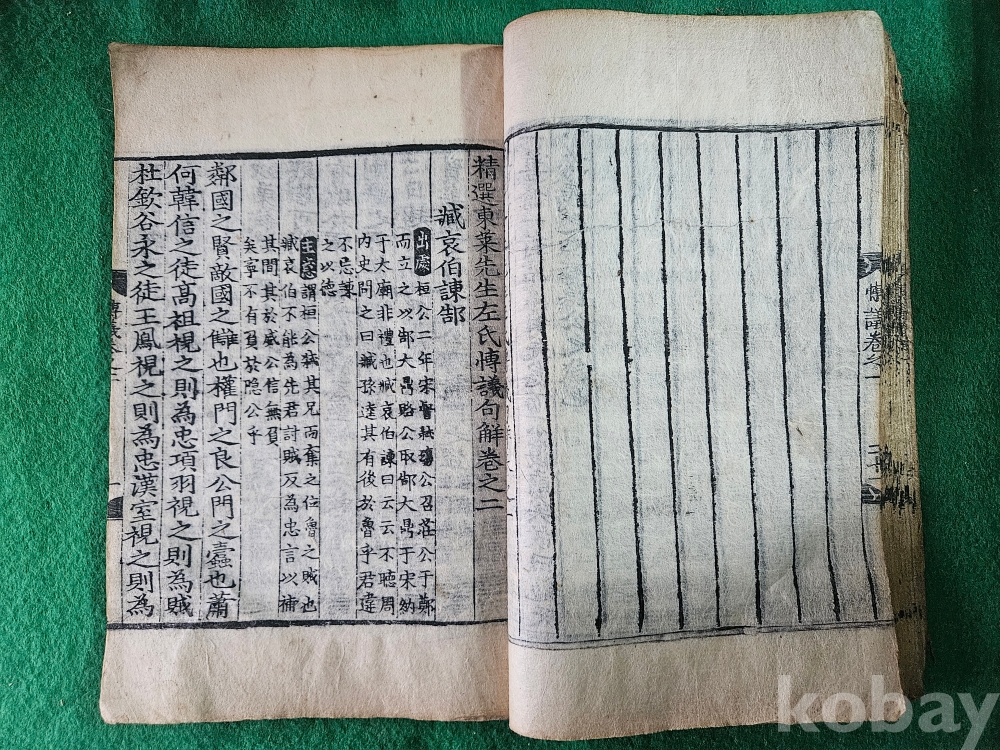 精選東萊先生左氏博議句解卷之二
臧哀伯諫郜
出處 桓公二年宋督弒殤公召莊公于鄭
而立之以郜大鼎賂公取郜大鼎于宋納
于太廟非禮也臧哀伯諫曰云云不聽周
內史聞之曰臧孫達其有後於魯乎君違
不忘諫
之以德
主意 謂桓公弒其兄而奪之位魯之賊也
臧哀伯不能為先君討賊反為忠言以補
其間其於威公信無負
矣寧不有負於隐公乎
鄰國之賢敵國之讎也權門之良公門之蠹也蕭
何韓信之徒高祖視之則為忠項羽視之則為賊
杜欽谷永之徒王鳳視之則為忠漢室視之則為
博議卷之一
kobay